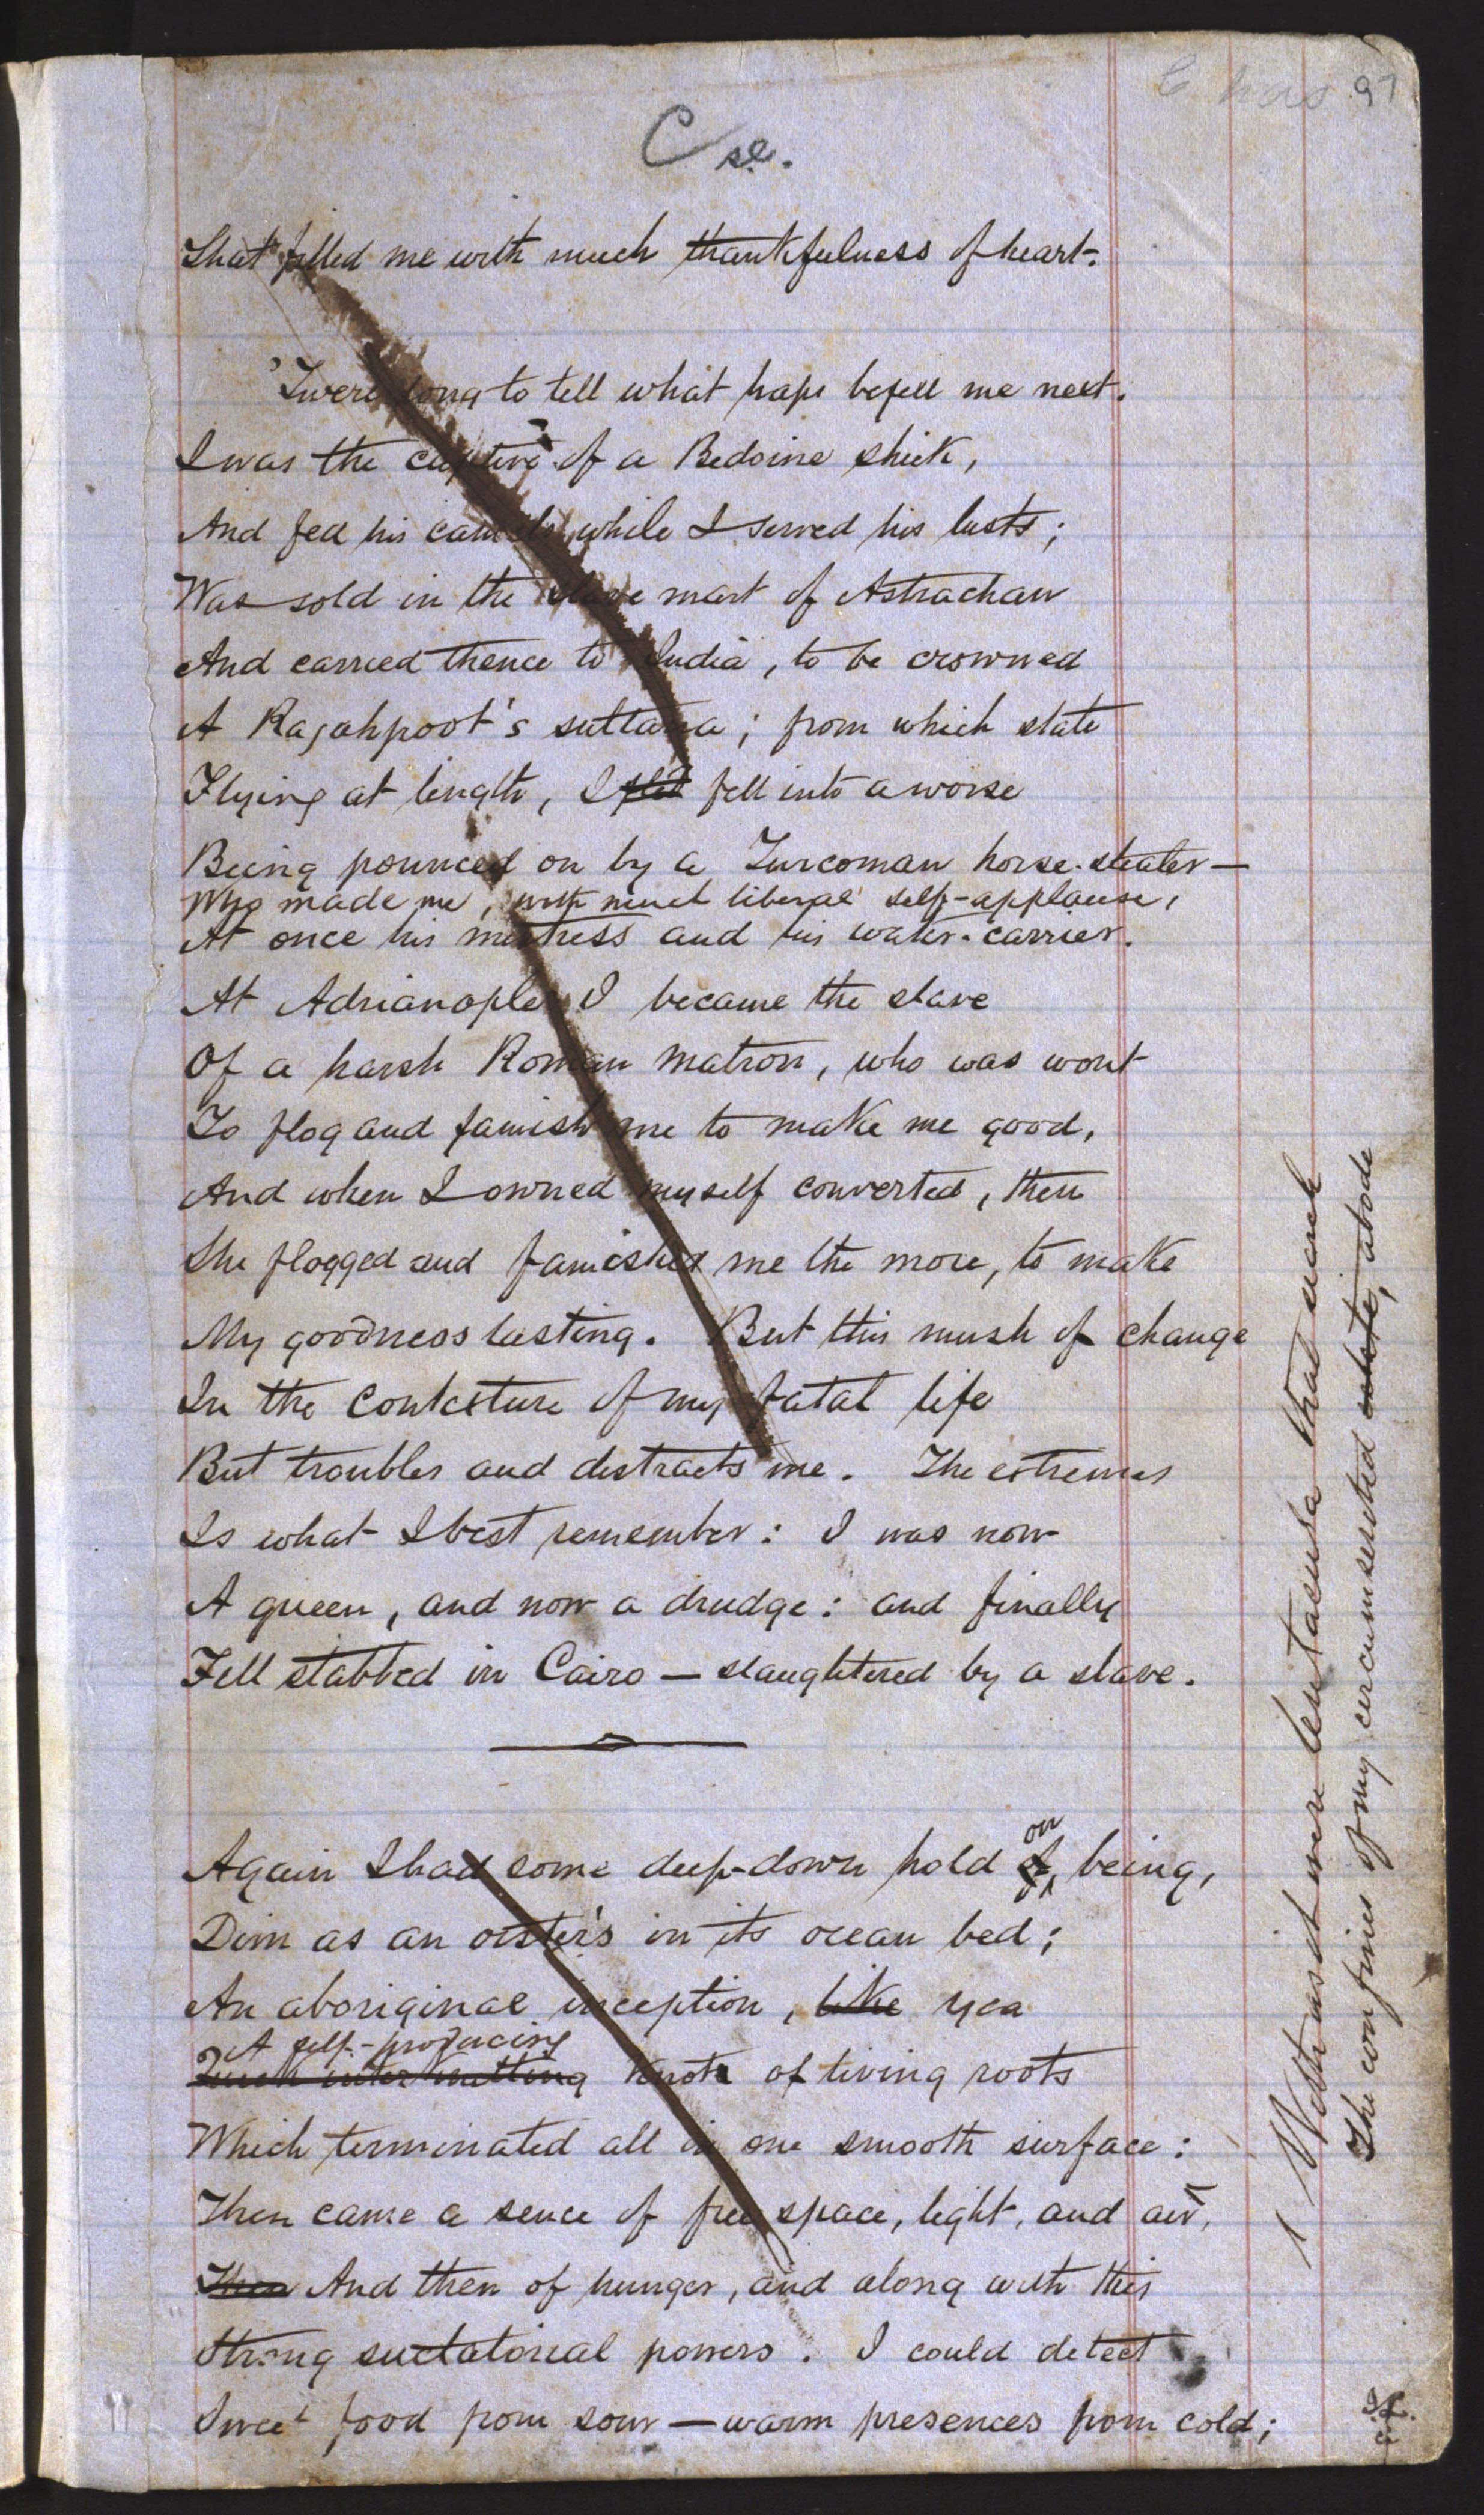 97
C se.
That filled me with much thankfulness of heart.
'Twere long to tell what haps befell me next.
I was the captive of a Bedoine shiek,
And fed his camels while I served his lusts;
Was sold in the slave mart of Astrachan
And carried thence to India, to be crowned
A Rajahpoot's sultana; from which state
Flying at length, I fled fell into a worse
Being pounced on by a Turcoman horse-stealer—
Who made me, with much liberal self-applause,
At once his mistress and his water-carrier.
At Adrianople I became the slave
Of a harsh Roman matron, who was wont
To flog and famish me to make me good,
And when I owned myself converted, then
She flogged and famished me the more, to make
My goodness lasting. But this mush of change
In the contexture of my fatal life
But troubles and distracts me. The extremes
Is what I best remember: I was now
A queen, and now a drudge: and finally
Fell stabbed in Cairo — slaughtered by a slave.
Again I had some deep-down hold of on being,
Dim as an oister's in its ocean bed;
An aboriginal inception, like yea
A self-producing
inter knitting knot of living roots
Which terminated all in one smooth surface:
Then came a sence of free space, light, and air,
Then And then of hunger, and along with this
Strong suctatorial powers. I could detect
Sweet food from sour — warm presences from cold;
Withrust were tentacula that
The confines of my circumscribed estate, abode